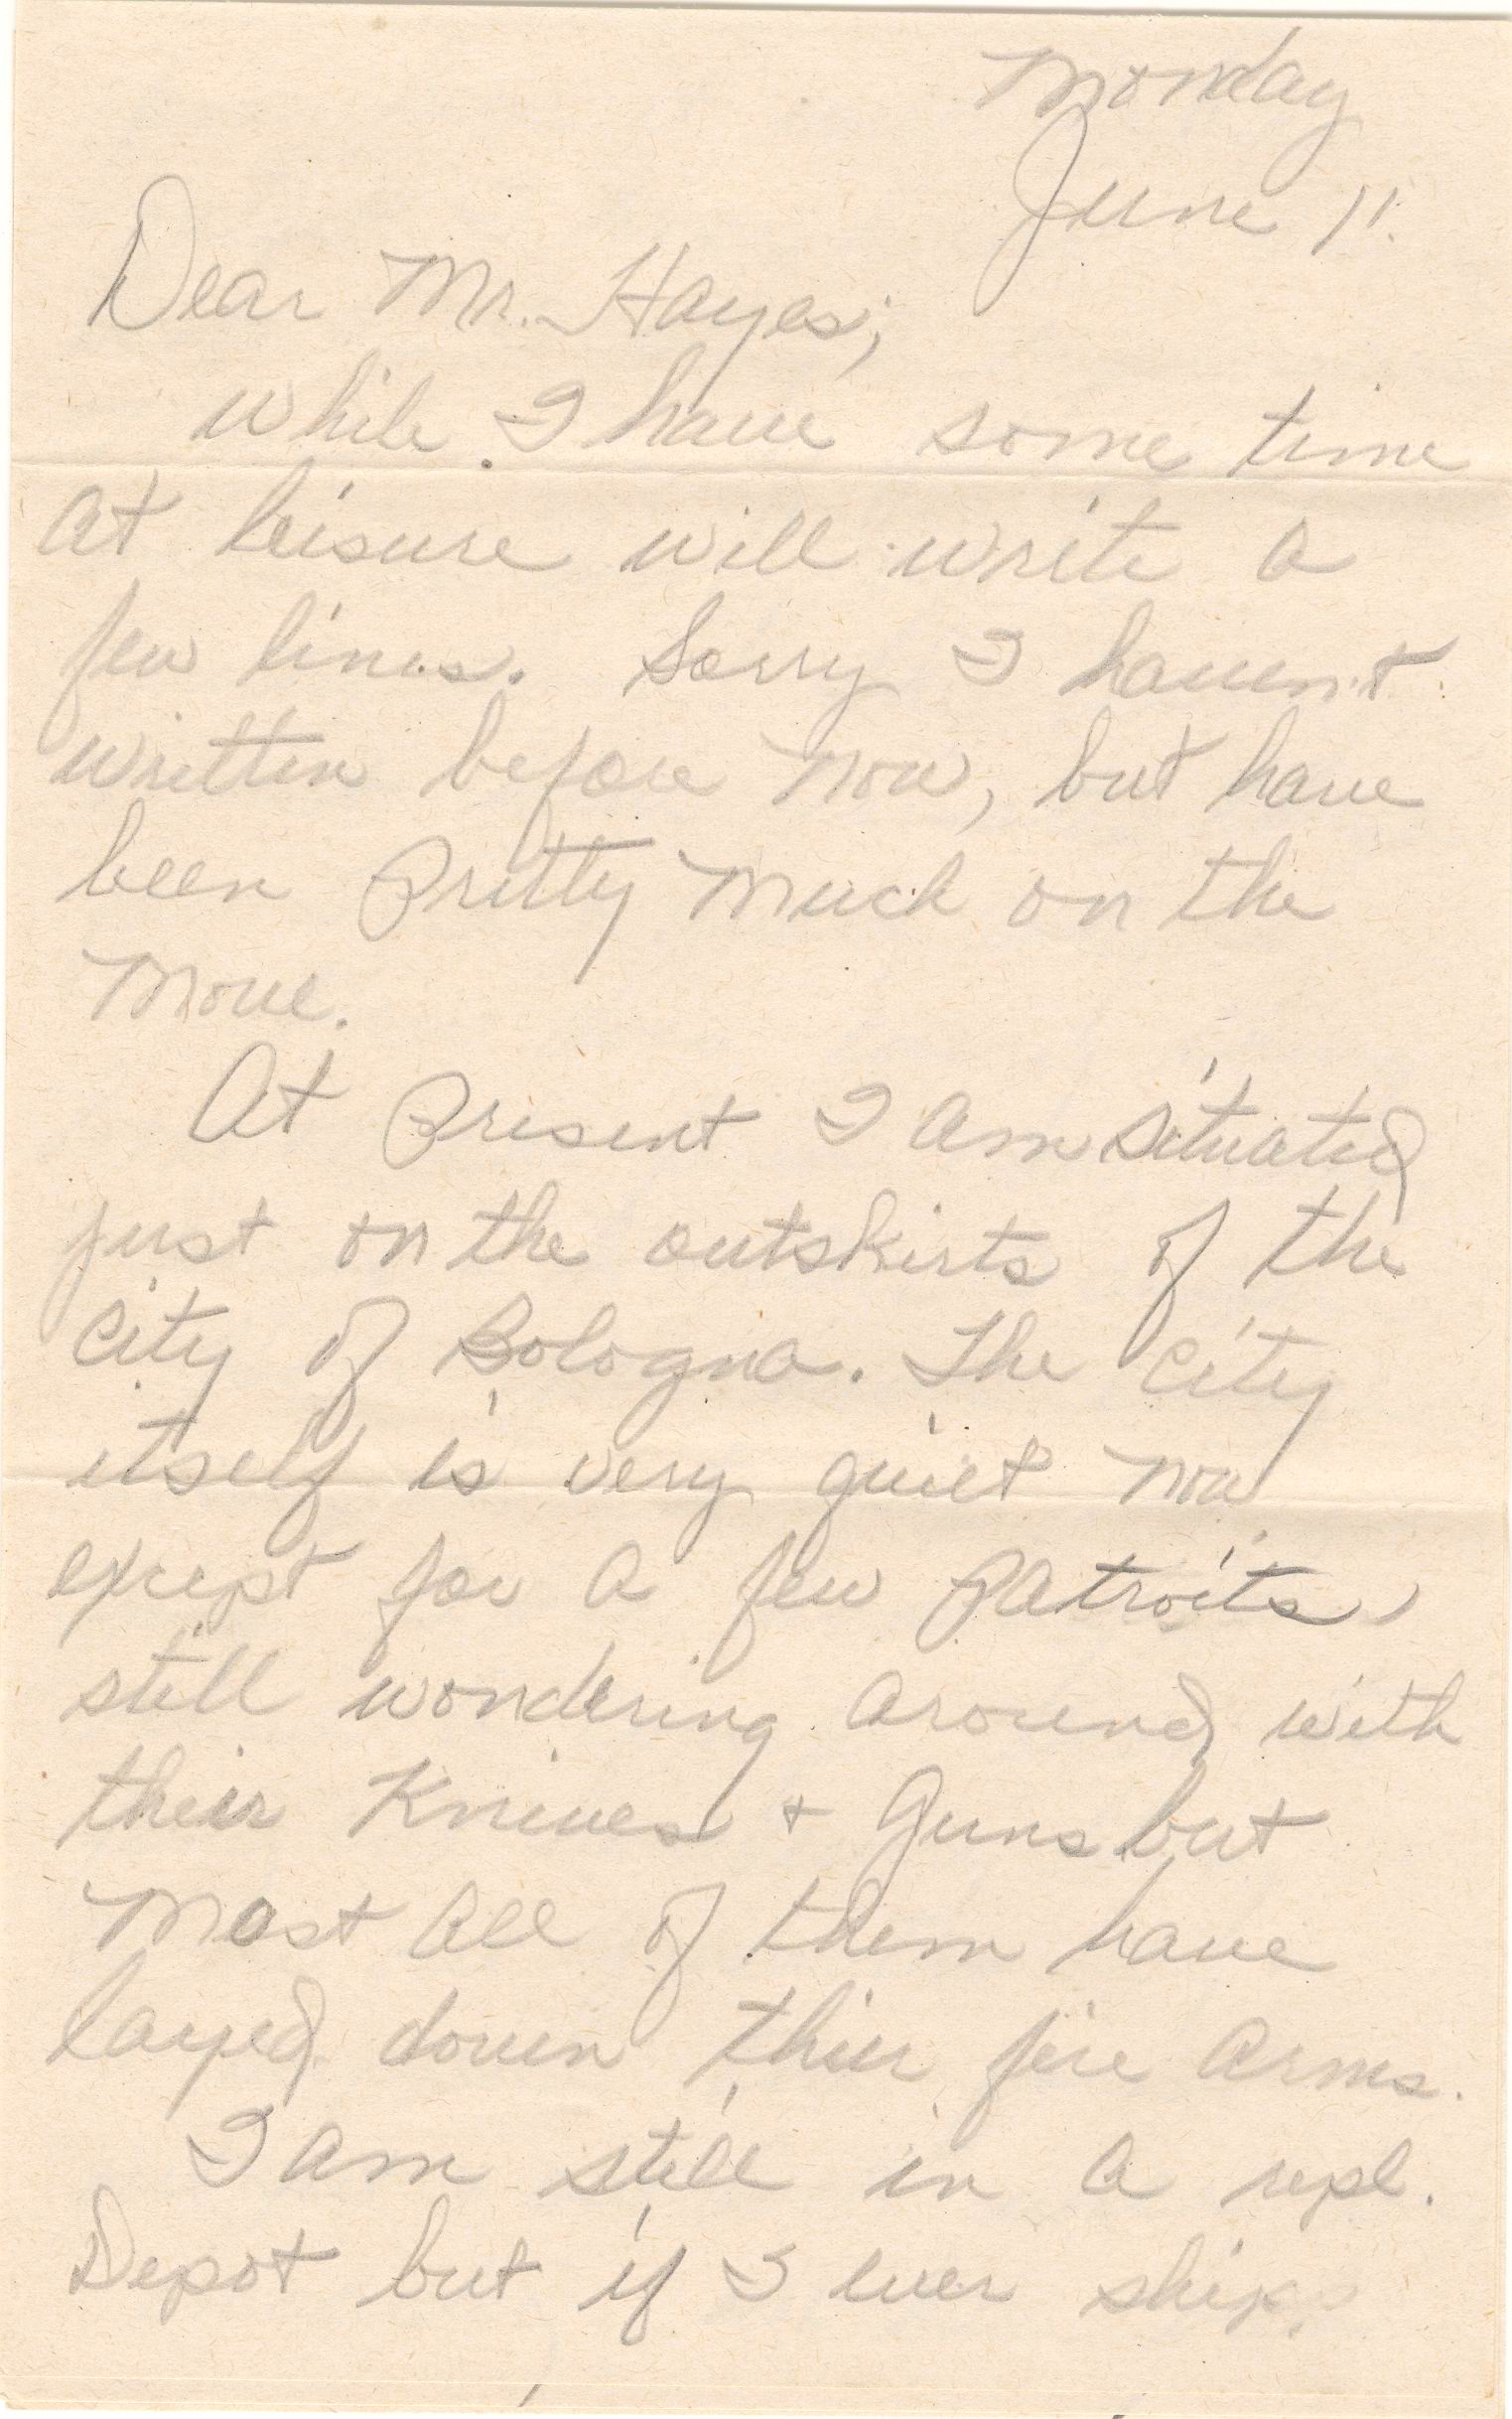 Monday
June 11.
Dear Mr. Hayes;
while I have some time
at leisure will write a
few lines. Sorry I haven't
written before now, but have
been pretty much on the
move.
At present I am situated
just on the outskirts of the
city of Bologna. The city
itself is very quiet now
except for a few patroits,
still wondering around with
their Knives + Guns but
most all of them have
layed down their fire arms.
I am still in a repl.
Depot but if I ever ship